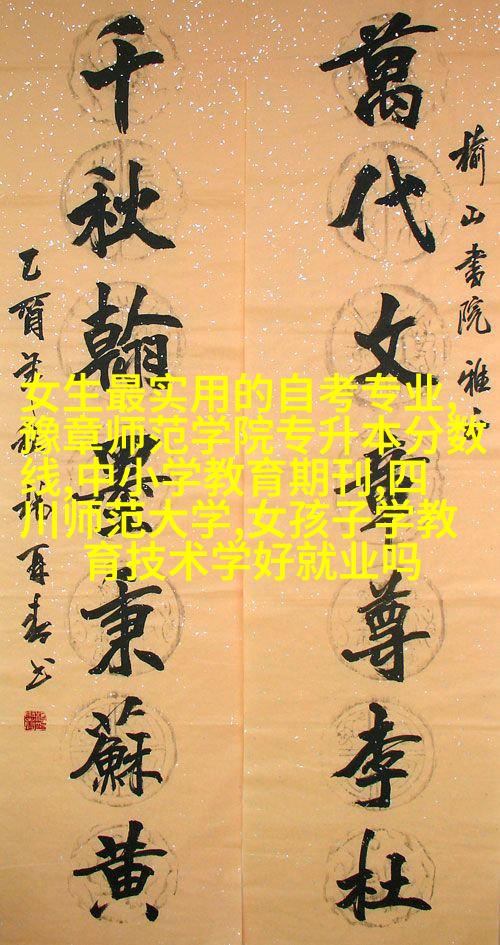 榆山書院雅
萬代文章尊李杜
千秋翰墨秉蘇黄
乙酉
再春书
女生最实用的自考专业,
豫章师范学院专升本分数
线,中小学教育期刊,四
川师范大学,女孩子学教
育技术学好就业吗